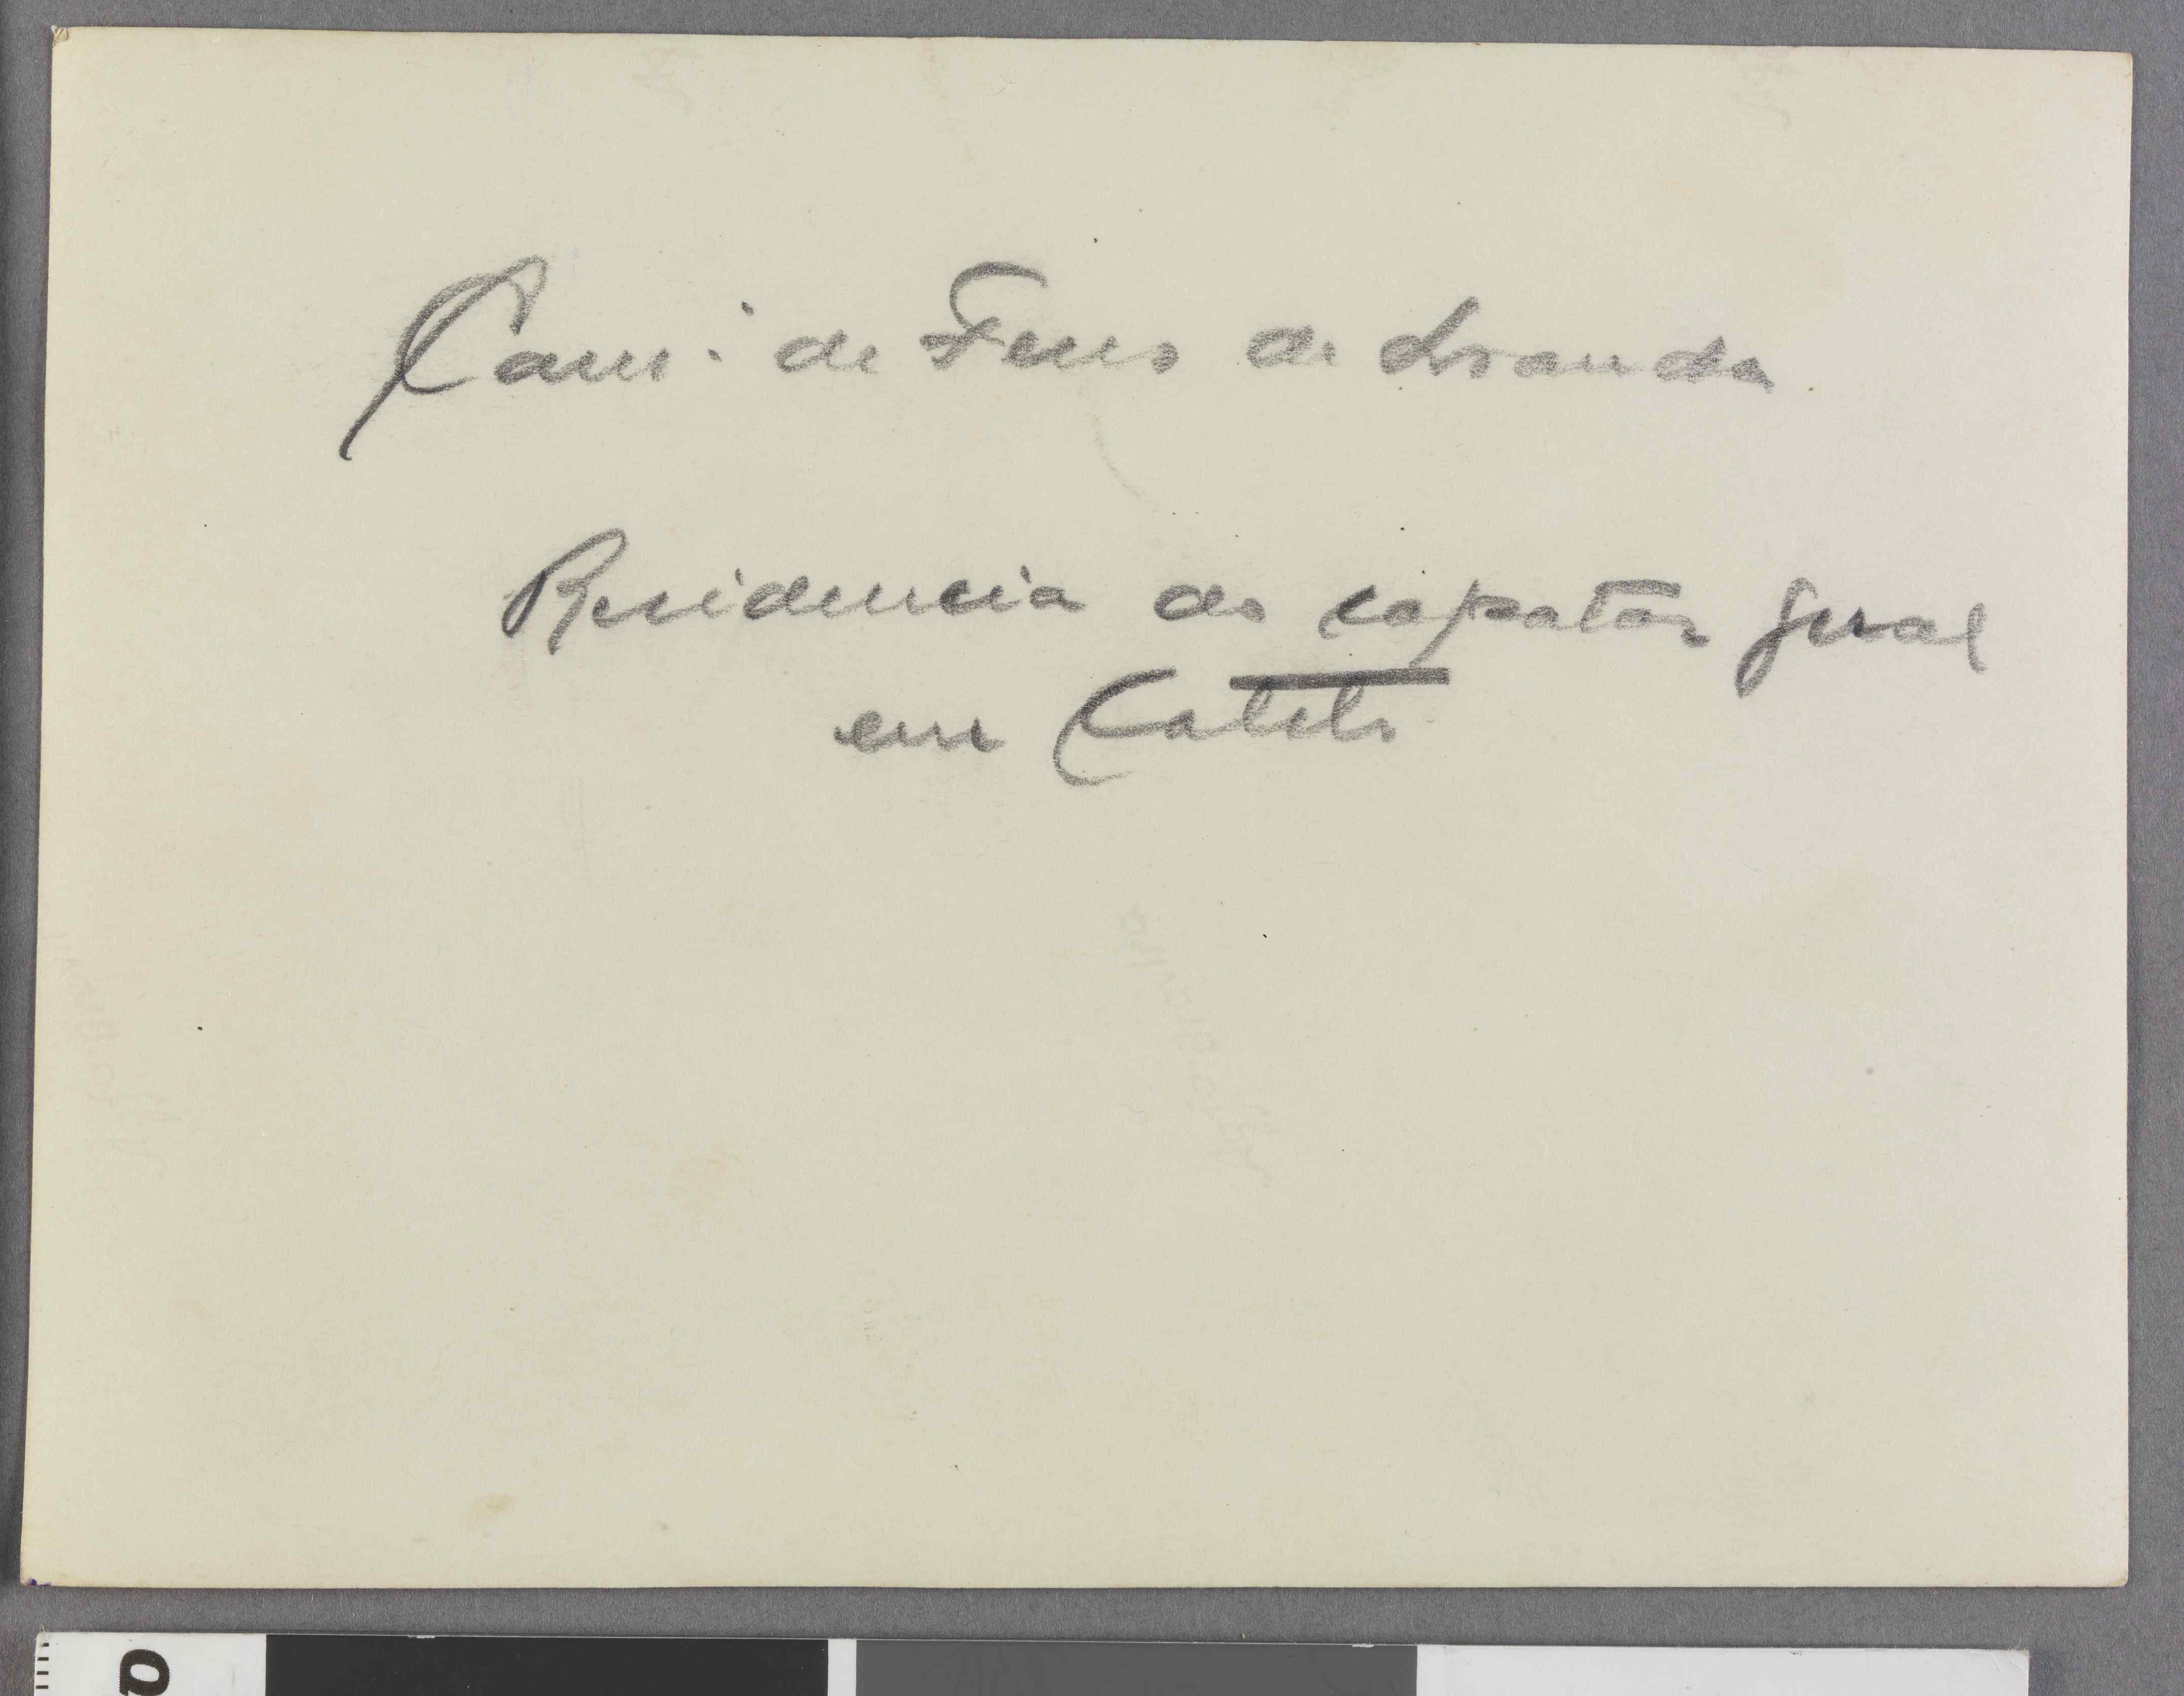 Cam.º de Ferro de Loanda
Residencia do capataz geral
em Catete